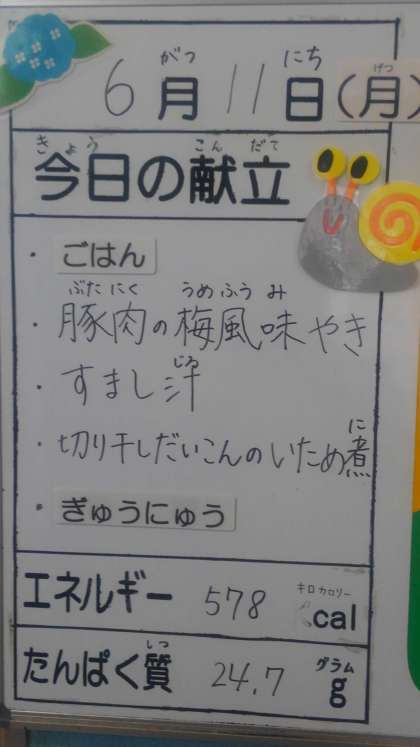 がつ にち げつ
6月11日(月)
きょう こん だて
今日の献立
・ごはん
ぶたにく うめふうみ
・豚肉の梅風味やき
じる
・すまし汁
に
・切り干しだいこんのいため煮
・ぎゅうにゅう
キロカロリー
エネルギー 578 cal
しつ グラム
たんぱく質 24.7 g